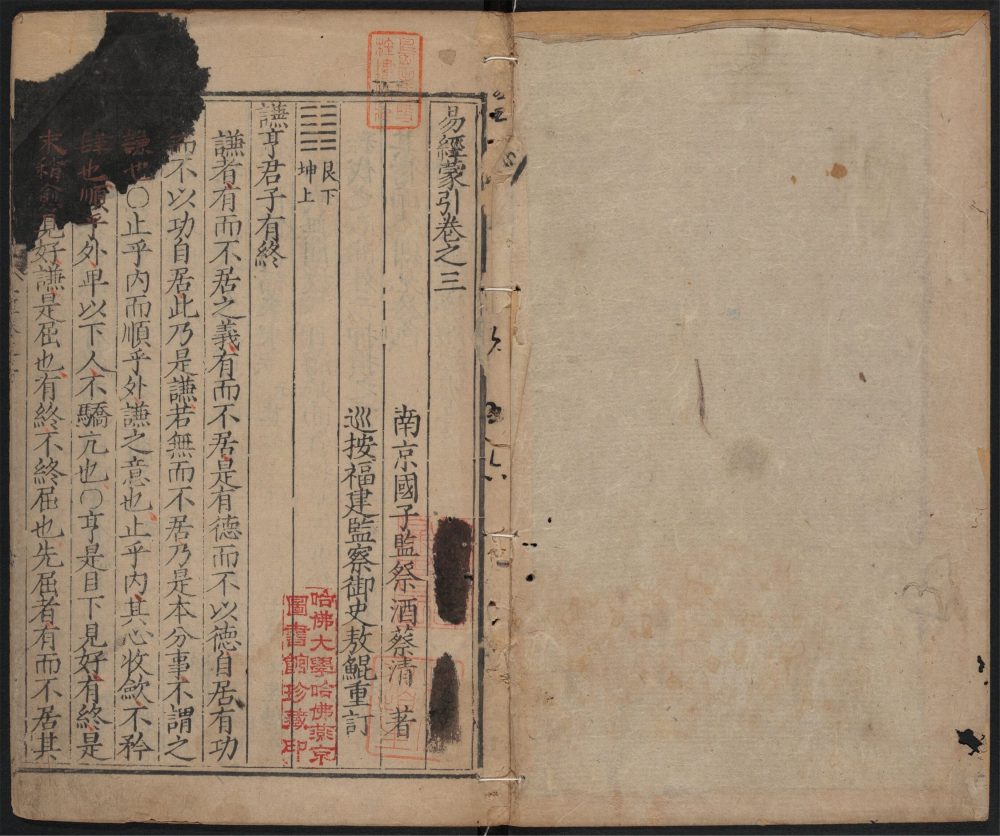 易經蒙引卷之三
南京國子監祭酒蔡清著
巡按福建監察御史敖鯤重訂
艮下
坤上
謙亨君子有終
謙者有而不居之義有而不居是有德而不以德自居有功
而不以功自居此乃是謙若無而不居乃是本分事不謂之
謙也〇止乎内而順乎外謙之意也止乎内其心收斂不矜
肆也順乎外卑以下人不驕亢也〇亨是目下見好有終是
末稍愈見好謙是屈也有終不終屈也先屈者有而不居其
哈佛大學哈佛燕京
圖書館珍藏印